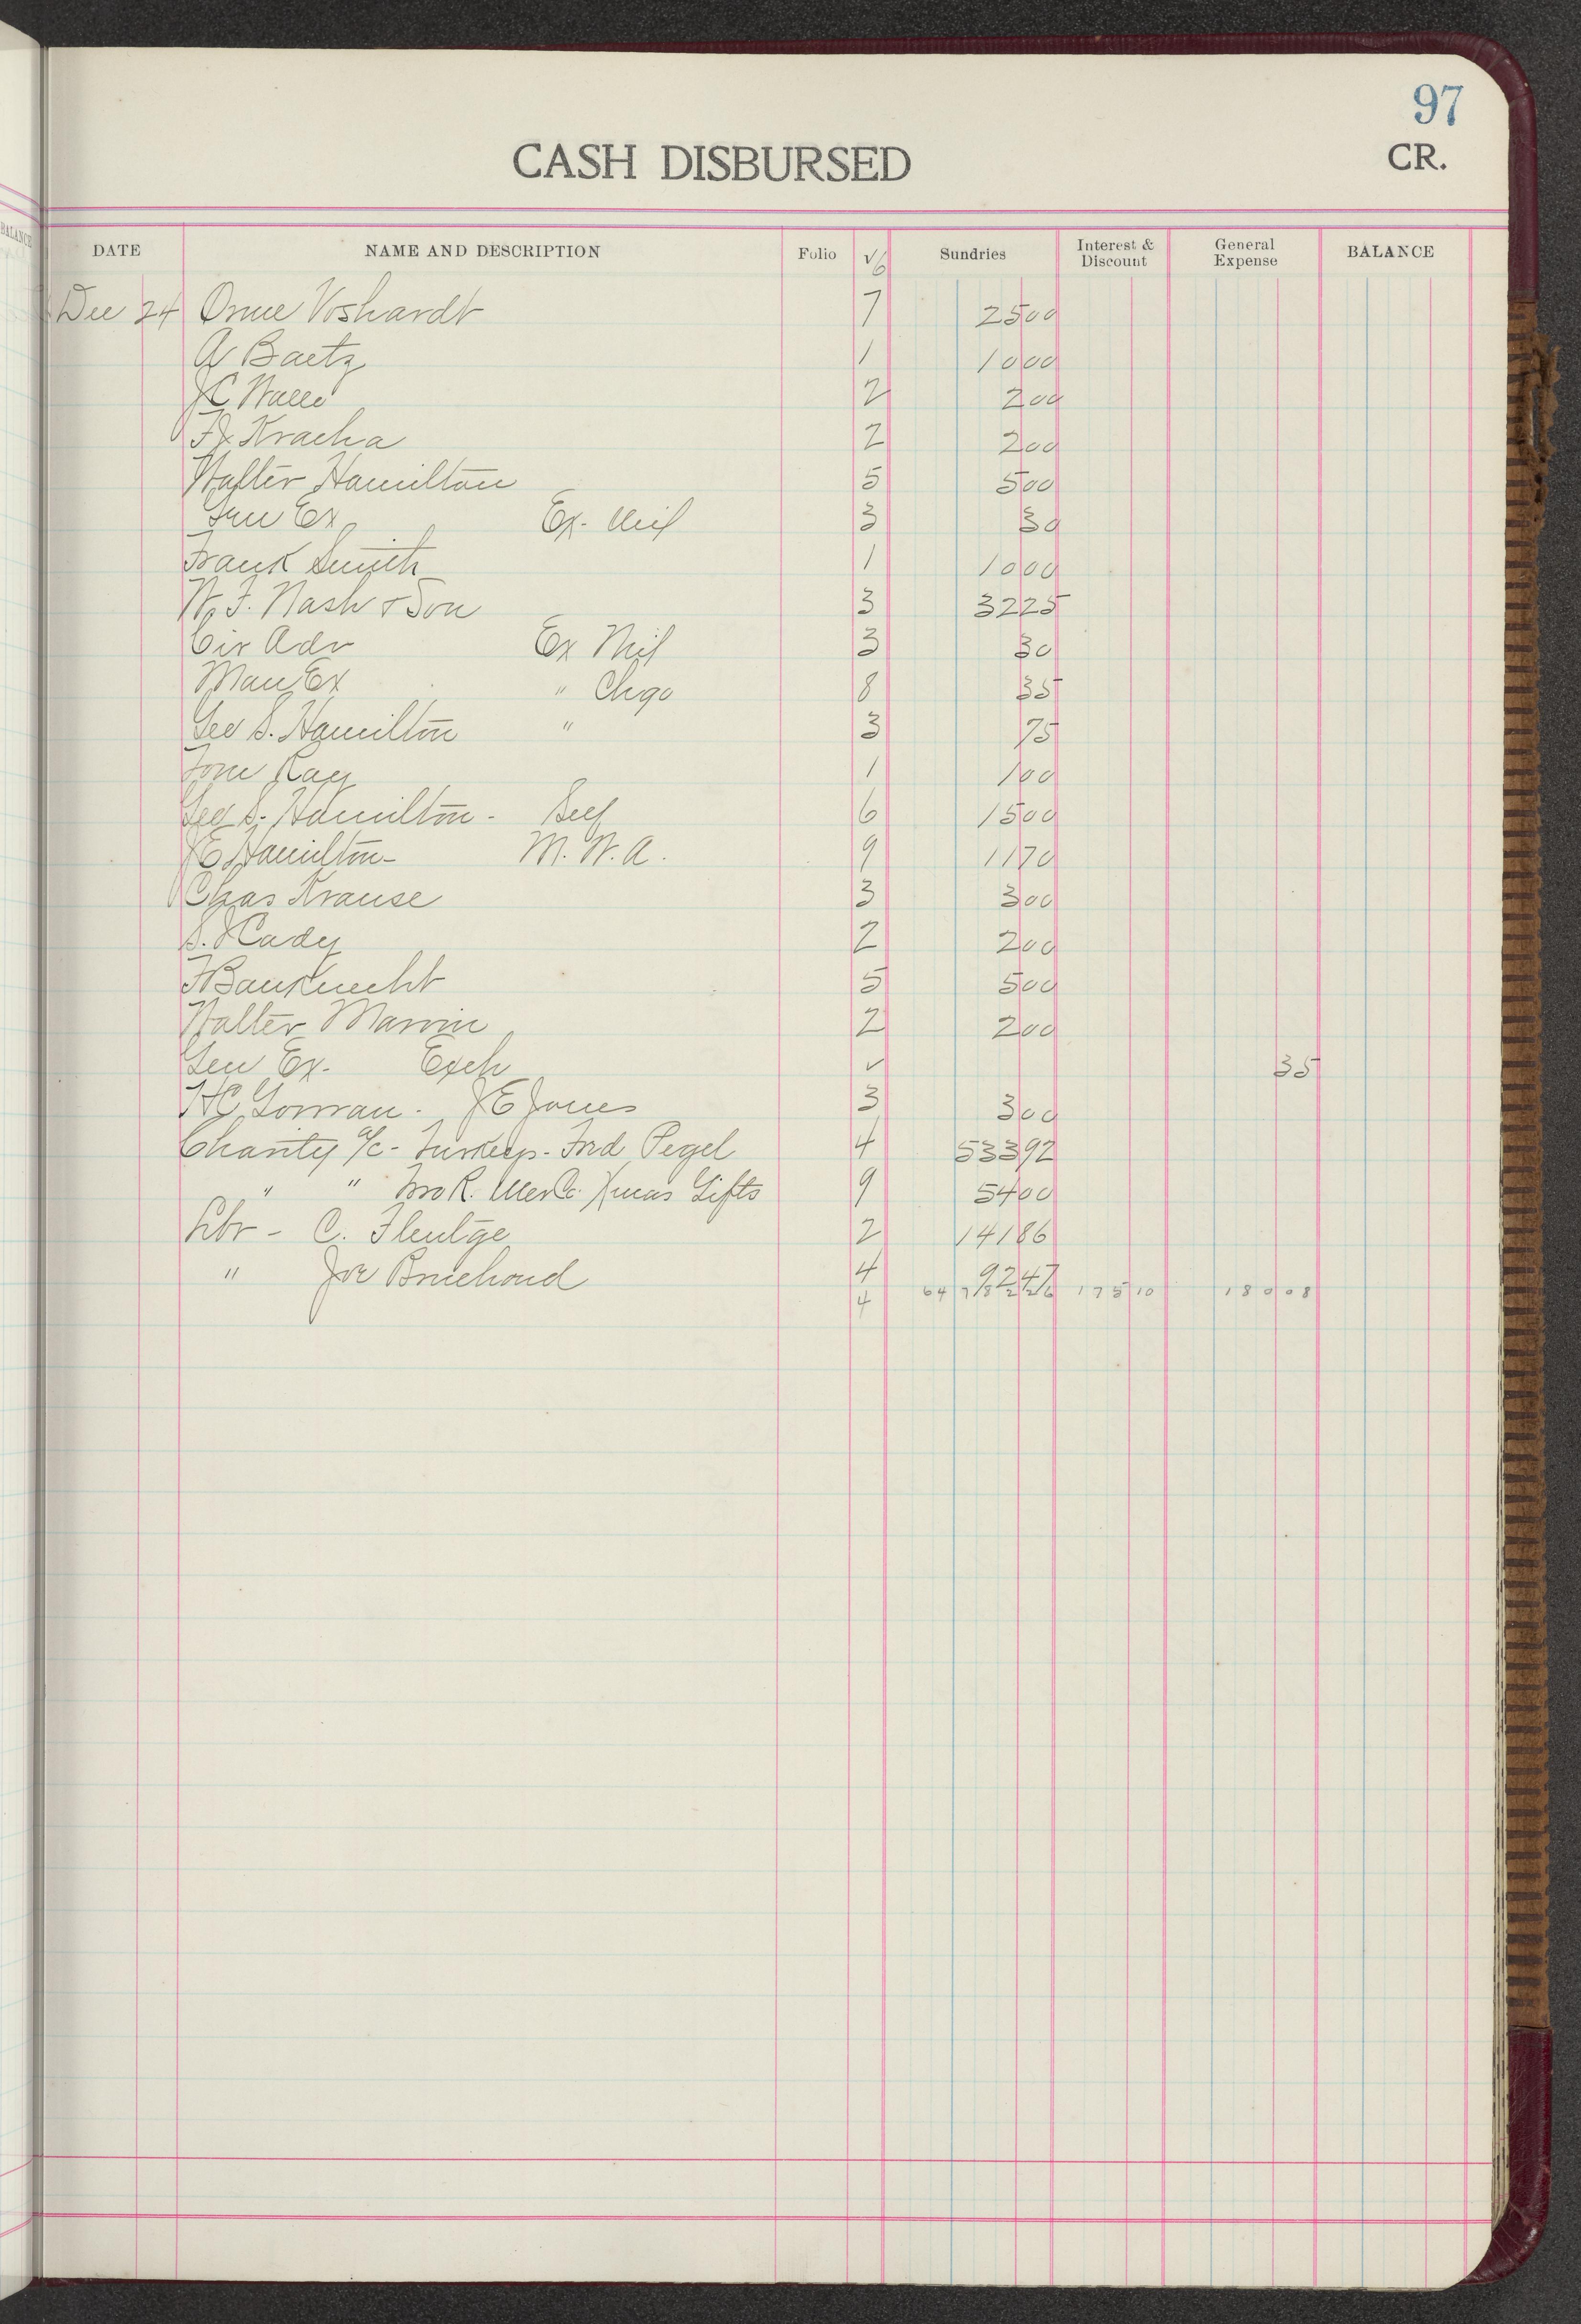 97
CASH DISBURSED
CR.
BALANCE
DATE NAME AND DESCRIPTION Folio √6 Sundries Interest & Discount General Expense BALANCE
Dec 24 Orme Voshardt 7 2500
A Baetz 1 1000
JC Walle 2 200
FJ Kracha 2 200
Walter Hamilton 5 500
Gen Ex Ex. Mil 3 30
Frank Smith 1 1000
W. F. Nash & Son 3 3225
Cir Adv Ex Mil 3 30
Man Ex " Chgo 8 35
Geo S. Hamilton " 3 75
Tom Kay 1 100
Geo S. Hamilton - Self 6 1500
JE Hamilton - M. W. A. 9 1170
Chas Krause 3 300
S. J Cady 2 200
F Bauknecht 5 500
Walter Marvin 2 200
Gen Ex. Exch ✓ 35
HC Gowran. JE Jones 3 300
Charity a/c - Turkeys - Fred Pegel 4 53392
" " Two R. Mer Co. Xmas Gifts 9 5400
Lbr - C. Fleutge 2 14186
" Joe Bruchond 4 9247
4 64 7 8 2 2 6 1 7 5 10 1 8 0 0 8